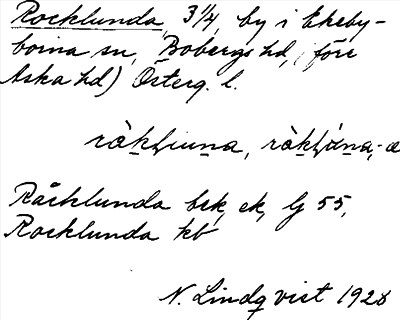 Rocklunda, 3 1/4, by i Ekeby-
borna sn, Bobergs hd, (före
Aska hd) Österg. l.
Råcklunda bek, ek, lj 55,
Rocklunda kb
N. Lindqvist 1928